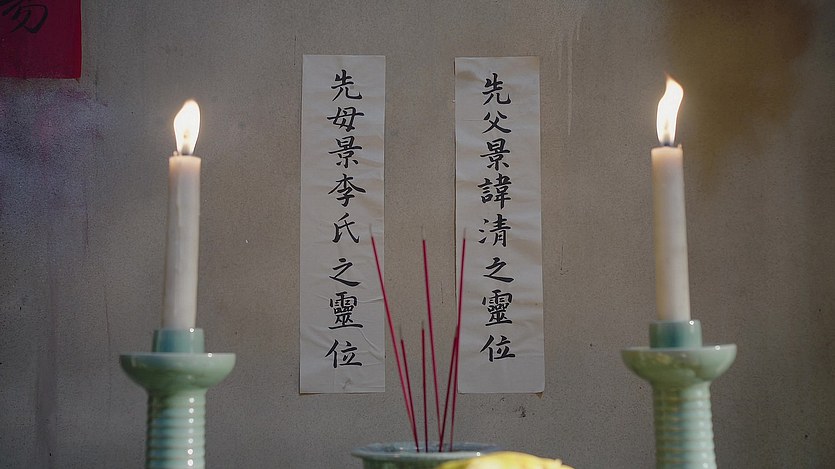 先父景諱清之靈位
先母景李氏之靈位
勿